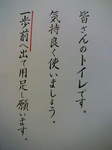 皆さんのトイレです。
気持良く使いましょう。
一歩前へ出て用足し願います。